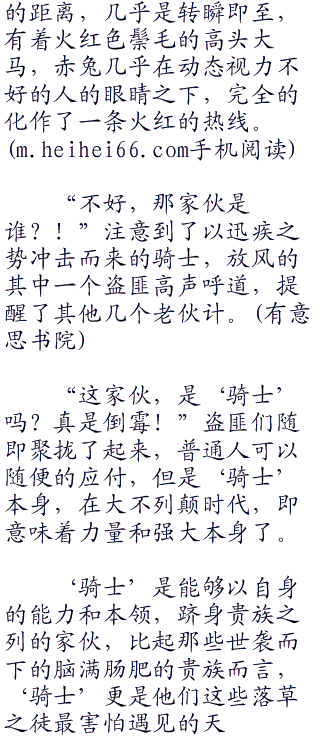 的距离，几乎是转瞬即至，
有着火红色鬃毛的高头大
马，赤兔几乎在动态视力不
好的人的眼睛之下，完全的
化作了一条火红的热线。
(m.heihei66.com手机阅读)
“不好，那家伙是
谁？！”注意到了以迅疾之
势冲击而来的骑士，放风的
其中一个盗匪高声呼道，提
醒了其他几个老伙计。(有意
思书院)
“这家伙，是‘骑士’
吗？真是倒霉！”盗匪们随
即聚拢了起来，普通人可以
随便的应付，但是‘骑士’
本身，在大不列颠时代，即
意味着力量和强大本身了。
‘骑士’是能够以自身
的能力和本领，跻身贵族之
列的家伙，比起那些世袭而
下的脑满肠肥的贵族而言，
‘骑士’更是他们这些落草
之徒最害怕遇见的天